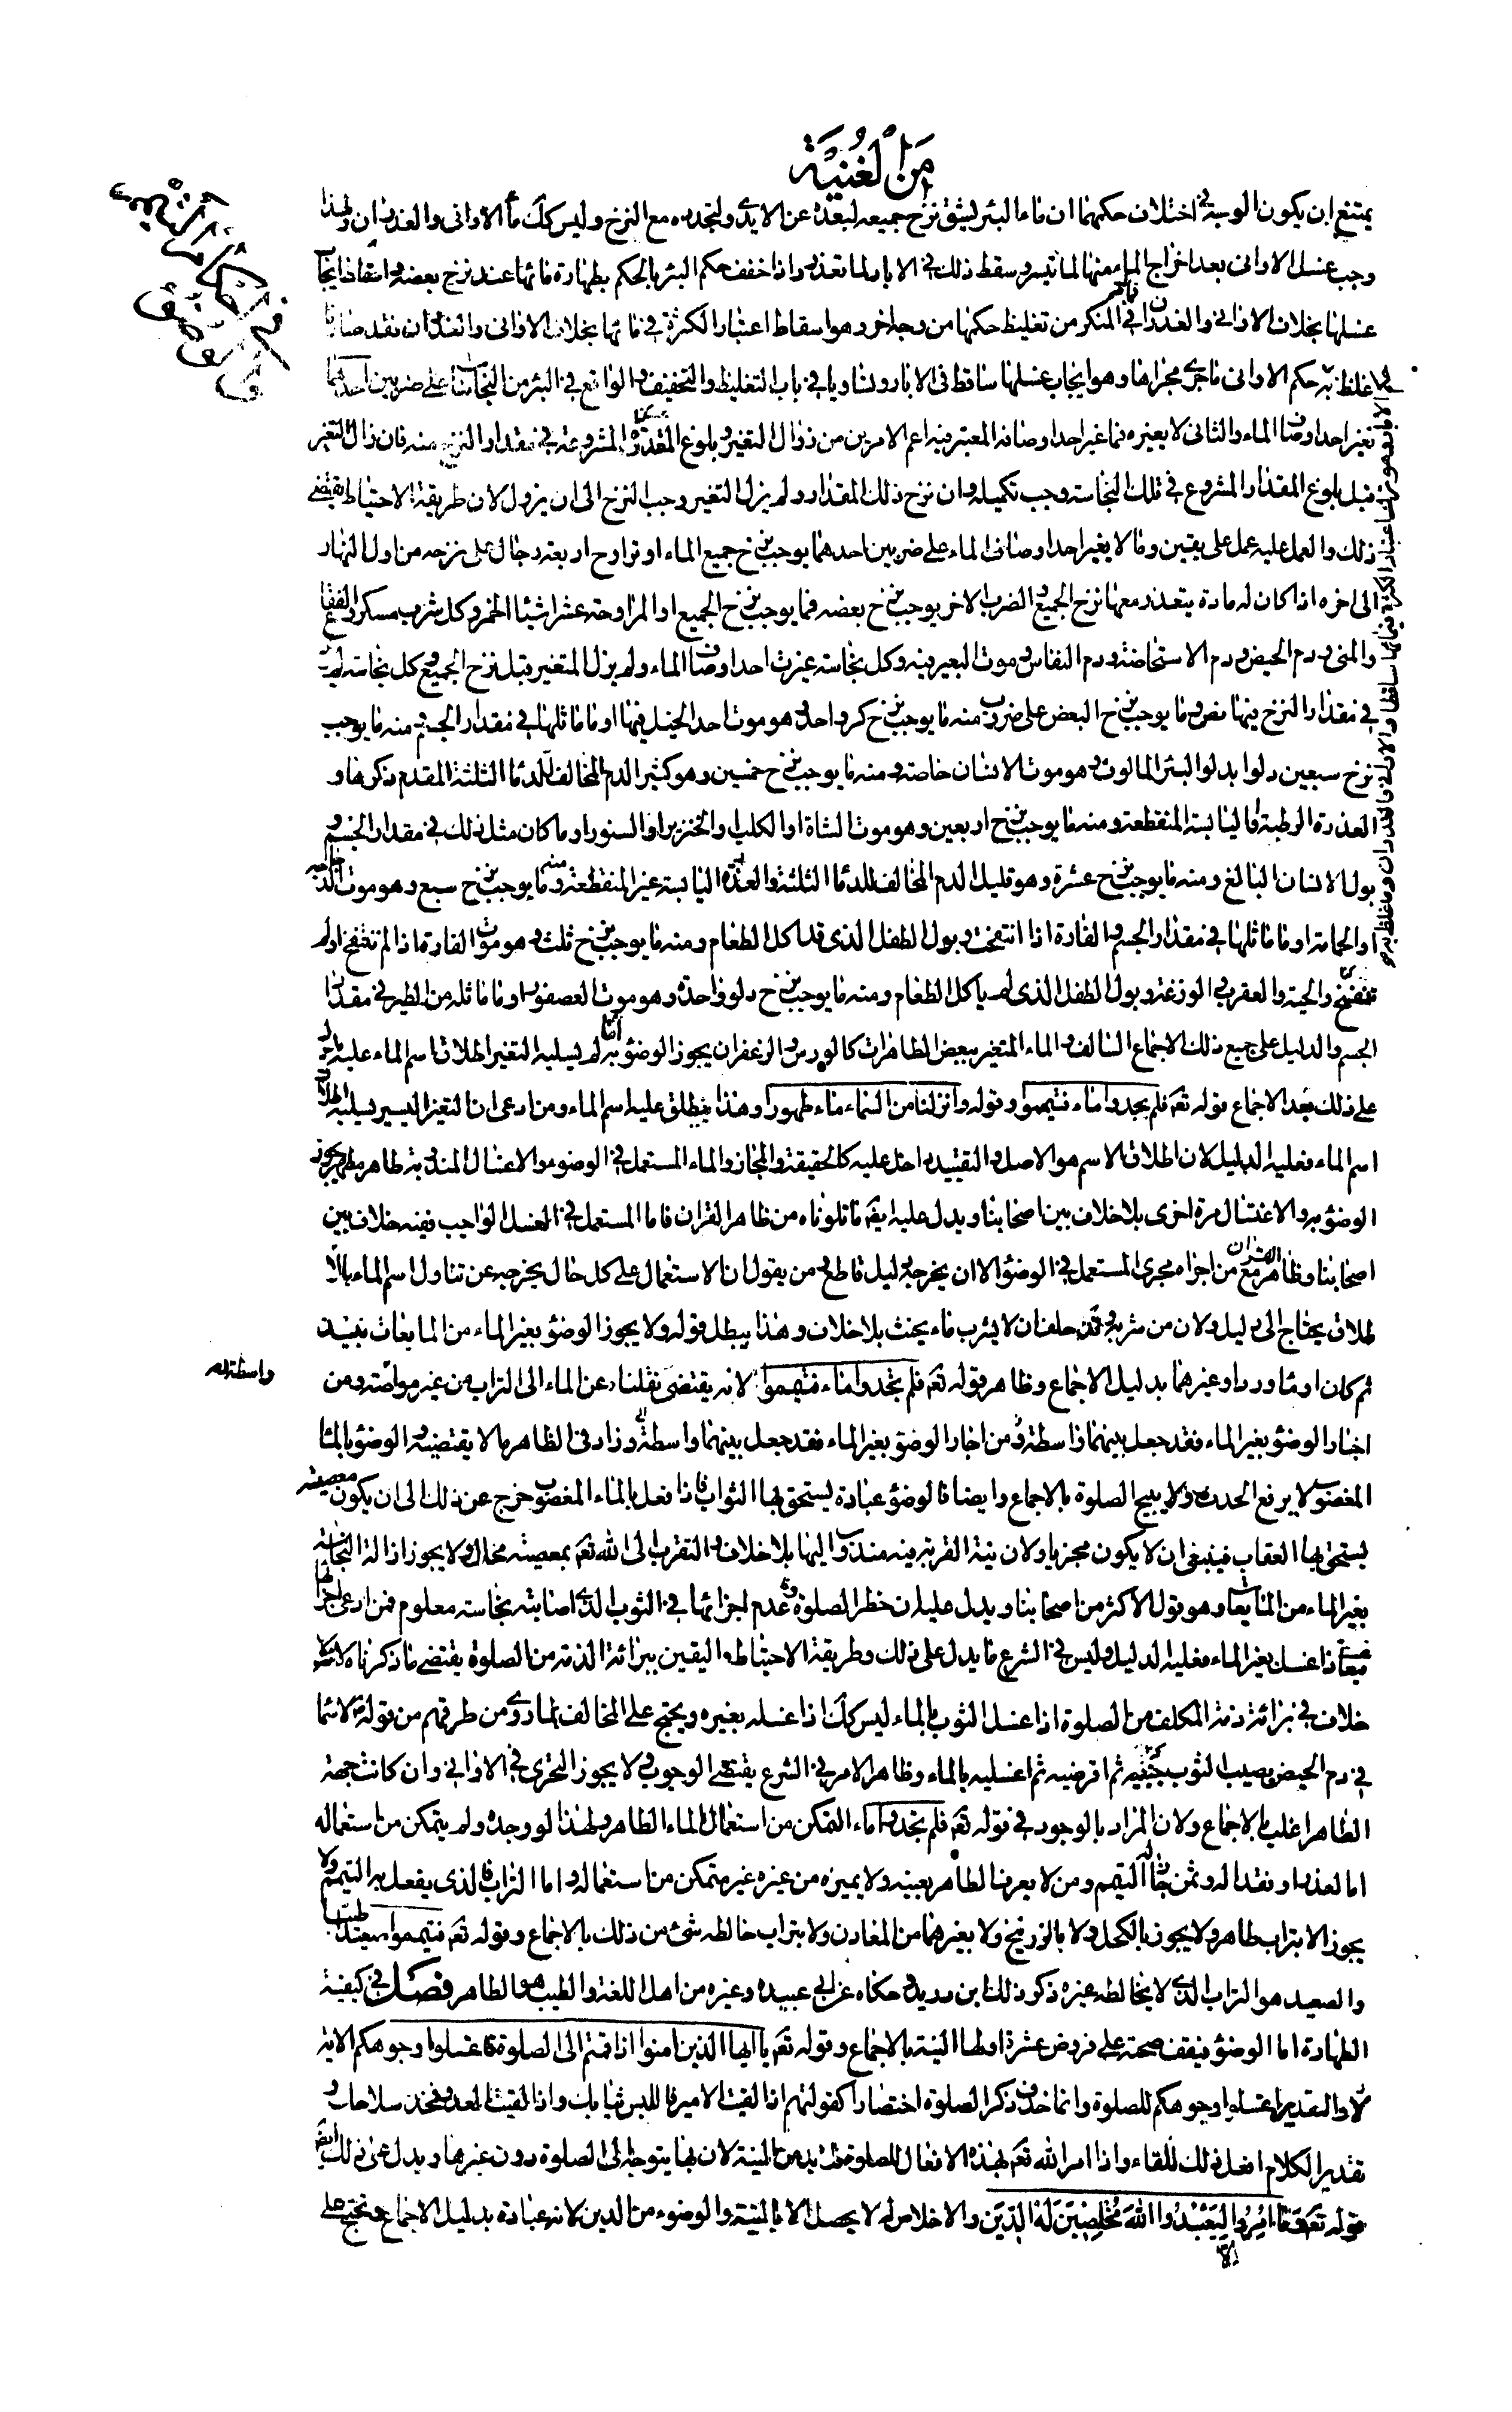 مَنَ الغُنيَة
يمتنع ان يكون الوجه في اختلاف حكمهما ان ماء البئر يشق نزح جميعه لبعده عن الايدي ولتجدده مع النزح وليس كك ماء الاواني والغدران ولهذا
وجب غسل الاواني بعد اخراج الماء منها لما تيسر وسقط ذلك في الابار لما تعذر واذا خفف حكم البئر بالحكم بطهارة مائها عند نزح بعضه واسقاط ايجاب
غسلها بخلاف الاواني والغدران في المنكر من تغليظ حكمها من وجه اخر وهو اسقاط اعتبار الكثرة في مائها بخلاف الاواني والغدران فقد صار ما
غلظ به حكم الاواني ما جرى مجراها وهو ايجاب غسلها ساقطا في الابار وتساويا في باب التغليظ والتخفيف والواقع في البئر من النجاسات على ضربين احدهما
تغير احد اوصاف الماء والثاني لا يغيره فما غير احد اوصافه المعتبر فيه اعم الامرين من زوال التغير وبلوغ المقدار المشروع في مقدار النزح منه فان زال التغير
قبل بلوغ المقدار المشروع في تلك النجاسة وجب تكميله وان نزح ذلك المقدار ولم يزل التغير وجب النزح الى ان يزول لان طريقة الاحتياط يقتضي
ذلك والعمل عليه عمل على يقين وما لا يغير احد اوصاف الماء على ضربين احدهما يوجب نزح جميع الماء او تراوح اربعة رجال على نزحه من اول النهار
الى اخره اذا كان له مادة يتعذر معها نزح الجميع والضرب الاخر يوجب نزح بعضه فما يوجب نزح الجميع او المراوحة عشر اشياء الخمر وكل شراب مسكر والفقاع
والمني ودم الحيض ودم الاستحاضة ودم النفاس وموت البعير فيه وكل نجاسة غيرت احد اوصاف الماء ولم يزل المتغير قبل نزح الجميع وكل نجاسة لم يرد
في مقدار النزح فيها نص وما يوجب نزح البعض على ضروب منه ما يوجب نزح كر واحد وهو موت احد الخيل فيها او ما ماثلها في مقدار الجسم ومنه ما يوجب
نزح سبعين دلوا بدلو البئر المالوف وهو موت الانسان خاصة ومنه ما يوجب نزح خمسين وهو كثير الدم المخالف للدماء الثلثة المقدم ذكرها و
العذرة الرطبة واليابسة المنقطعة ومنه ما يوجب نزح اربعين وهو موت الشاة او الكلب او الخنزير او السنور او ما كان مثل ذلك في مقدار الجسم و
بول الانسان البالغ ومنه ما يوجب نزح عشرة وهو قليل الدم المخالف للدماء الثلثة والعذرة اليابسة غير المنقطعة ومنه ما يوجب نزح سبع وهو موت الدجاجة
او الحمامة او ما ماثلها في مقدار الجسم والفارة اذا انتفخت وبول الطفل الذي قد اكل الطعام ومنه ما يوجب نزح ثلث وهو موت الفارة اذا لم تنتفخ او لم
تتفسخ والحية والعقرب والوزغة وبول الطفل الذي لم ياكل الطعام ومنه ما يوجب نزح دلو واحدة وهو موت العصفور او ما ماثله من الطير في مقدار
الجسم والدليل على جميع ذلك الاجماع السالف والماء المتغير ببعض الطاهرات كالورس والزعفران يجوز الوضوء به ما لم يسلبه التغير اطلاق اسم الماء عليه يدل
على ذلك بعد الاجماع قوله تع فلم تجدوا ماء فتيمموا وقوله وانزلنا من السماء ماء طهورا وهذا ينطلق عليه اسم الماء ومن ادعى ان التغير اليسير يسلبه اطلاق
اسم الماء فعليه الدليل لان اطلاق الاسم هو الاصل والتقييد داخل عليه كالحقيقة والمجاز والماء المستعمل في الوضوء والاغتسال المندوبة طاهر مطهر يجوز
الوضوء به والاغتسال مرة اخرى بلا خلاف بين اصحابنا ويدل عليه ايضا ما تلوناه من ظاهر القران فاما المستعمل في الغسل الواجب ففيه خلاف بين
اصحابنا وظاهر القران مع من اجراه مجرى المستعمل في الوضوء الا ان يخرجه دليل قاطع ومن يقول ان الاستعمال على كل حال يخرجه عن تناول اسم الماء بالا
طلاق يحتاج الى دليل ولان من شربه وقد حلف ان لا يشرب ماء يحنث بلا خلاف وهذا يبطل قوله ولا يجوز الوضوء بغير الماء من المايعات نبيذ
تمر كان او ماء ورد او غيرهما بدليل الاجماع وظاهر قوله تع فلم تجدوا ماء فتيمموا لانه يقتضي نقلنا عن الماء الى التراب من غير واسطة ومن
اجاز الوضوء بغير الماء فقد جعل بينهما واسطة وزاد في الظاهر ما لا يقتضيه والوضوء بالماء
المغصوب لا يرفع الحدث ولا يبيح الصلوة بالاجماع وايضا فالوضوء عبادة يستحق بها الثواب فاذا فعل بالماء المغصوب خرج عن ذلك الى ان يكون معصية
يستحق بها العقاب فينبغي ان لا يكون مجزيا ولان نية القربة فيه مندوب اليها بلا خلاف والتقرب الى الله تع بمعصيته محال ولا يجوز ازالة النجاسة
بغير الماء من المايعات وهو قول الاكثر من اصحابنا ويدل عليه ان حظر الصلوة وعدم اجزائها في الثوب الذي اصابته نجاسة معلوم فمن ادعى اجزائها
فيه اذا غسل بغير الماء فعليه الدليل وليس في الشرع ما يدل على ذلك وطريقة الاحتياط واليقين ببرائة الذمة من الصلوة يقتضي ما ذكرناه لانه لا
خلاف في برائة ذمة المكلف من الصلوة اذا غسل الثوب بالماء وليس كك اذا غسله بغيره ويحتج على المخالف بما روى من طرقهم من قوله لاسماء
في دم الحيض يصيب الثوب حتيه ثم اقرضيه ثم اغسليه بالماء وظاهر الامر في الشرع يقتضي الوجوب ولا يجوز التحرى في الاواني وان كانت جهة
الطاهر اغلب بالاجماع ولان المراد بالوجود في قوله تع فلم تجدوا ماء التمكن من استعمال الماء الطاهر ولهذا لو وجده ولم يتمكن من استعماله
اما لعذر او فقد آلة وثمن جاز له التيمم ومن لا يعرف الطاهر بعينه ولا يميزه من غيره غير متمكن من استعماله واما التراب فالذي يفعل به التيمم ولا
يجوز الا بتراب طاهر ولا يجوز بالكحل ولا بالزرنيخ ولا بغيرهما من المعادن ولا بتراب خالطه شئ من ذلك بالاجماع وقوله تع فتيمموا صعيدا طيبا
والصعيد هو التراب الذي لا يخالطه غيره ذكر ذلك ابن دريد وحكاه عن ابي عبيده وغيره من اهل اللغة والطيب هو الطاهر فصل في كيفية
الطهارة اما الوضوء فيقف صحته على فروض عشرة اولها النية بالاجماع وقوله تع يا ايها الذين امنوا اذا قمتم الى الصلوة فاغسلوا وجوهكم الاية
لان التقدير فاغسلوا وجوهكم للصلوة وانما حذف ذكر الصلوة اختصارا كقولهم اذا لقيت الامير فالبس ثيابك واذا لقيت العدو فخذ سلاحك و
تقدير الكلام افعل ذلك للقاء واذا امر الله تع بهذه الافعال للصلوة فلا بد من النية لان بها يتوجه الى الصلوة دون غيرها ويدل على ذلك ايضا
قوله تع وَمَا اُمِرُوا اِلا لِيَعْبُدُوا اللهَ مُخْلِصِينَ لَهُ الدّينَ والاخلاص له لا يحصل الا بالنية والوضوء من الدين لانه عبادة بدليل الاجماع ونحتج على
واسطة